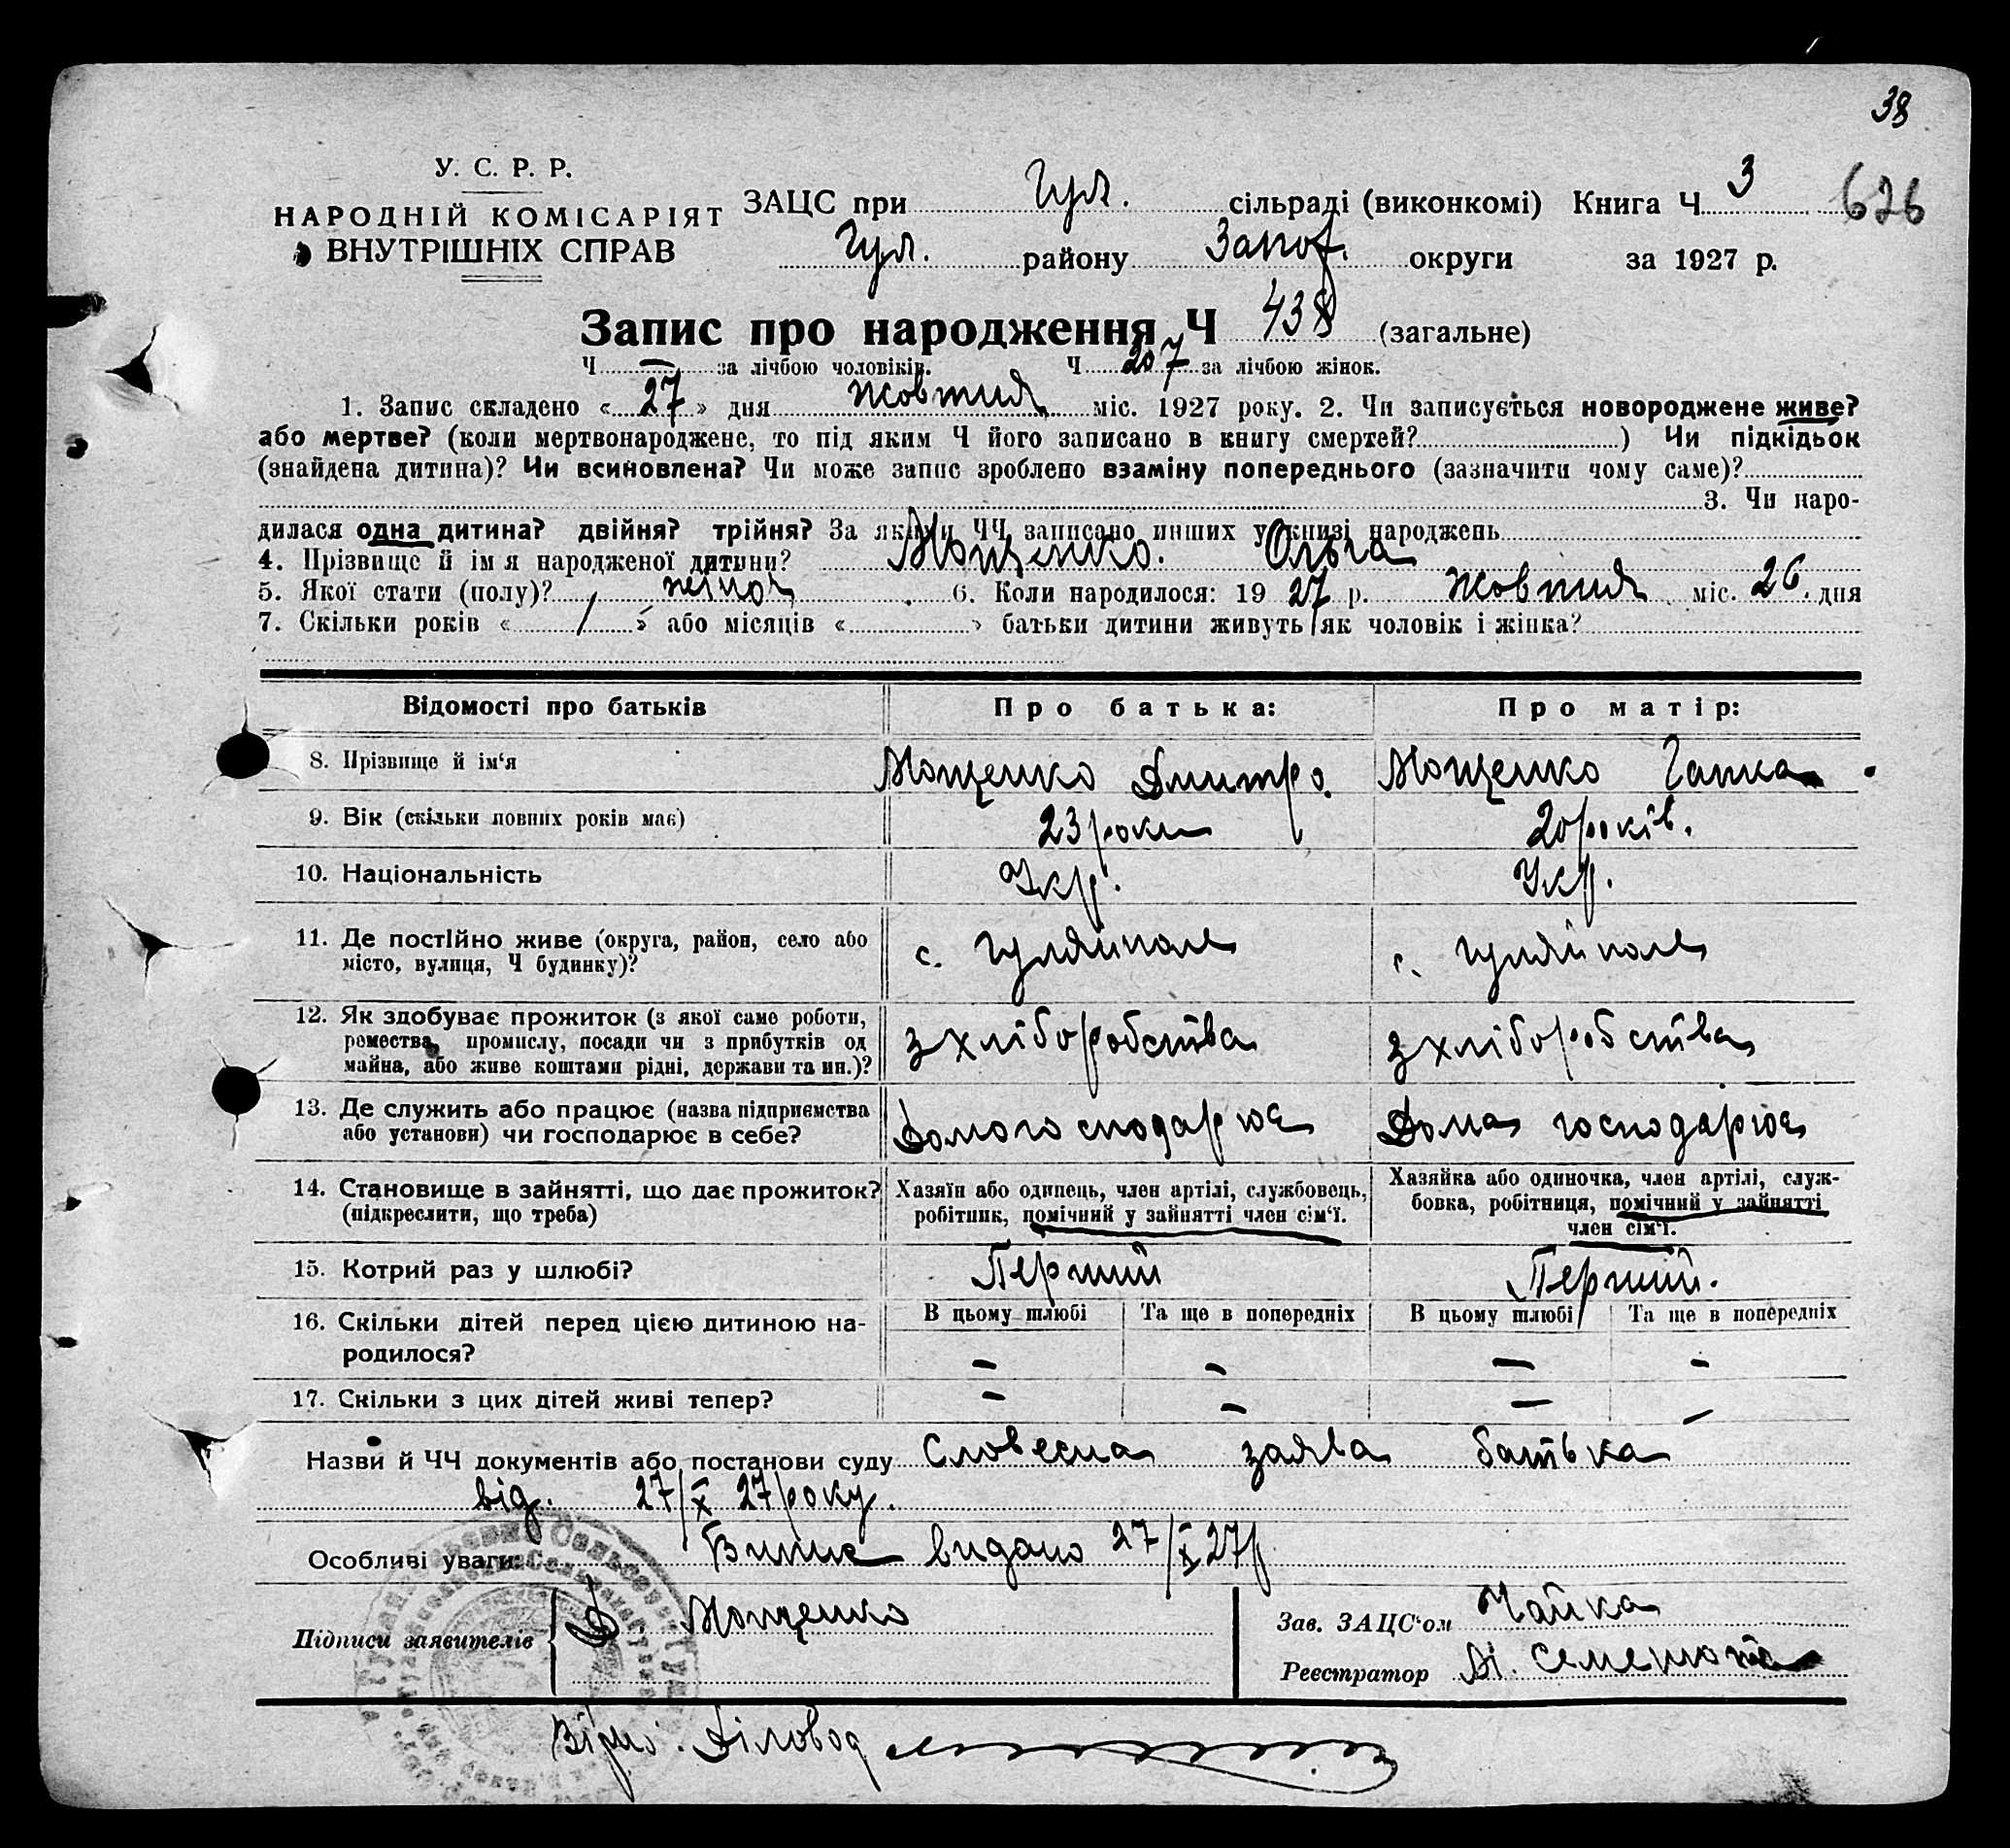 38
У. С. Р. Р.
НАРОДНІЙ КОМІСАРІЯТ
ВНУТРІШНІХ СПРАВ
ЗАЦС при Гул. сільраді (виконкомі) Книга Ч 3 626
Гул. району Запор. округи за 1927 р.
Запис про народження Ч 438 (загальне)
Ч — за лічбою чоловіків. Ч 207 за лічбою жінок.
1. Запис складено « 27 » дня жовтня міс. 1927 року. 2. Чи записується новороджене живе?
або мертве? (коли мертвонароджене, то під яким Ч його записано в книгу смертей? ) Чи підкідьок
(знайдена дитина)? Чи всиновлена? Чи може запис зроблено взаміну попереднього (зазначити чому саме)?
3. Чи наро-
дилася одна дитина? двійня? трійня? За якими ЧЧ записано инших у книзі народжень
4. Прізвище й ім я народженої дитини? Мощенко. Ольга
5. Якої стати (полу)? жіноч 6. Коли народилося: 19 27 р. жовтня міс. 26 дня
7. Скільки років « / » або місяців « » батьки дитини живуть як чоловік і жінка?
Відомості про батьків Про батька: Про матір:
8. Прізвище й ім‘я Мощенко Дмитро. Мощенко Гапка
9. Вік (скільки повних років має) 23 роки 20 років.
10. Національність Укр. Укр.
11. Де постійно живе (округа, район, село або
місто, вулиця, Ч будинку)? с. Гуляйполе с. Гуляйполе
12. Як здобуває прожиток (з якої саме роботи,
ремества, промислу, посади чи з прибутків од
майна, або живе коштами рідні, держави та ин.)? з хліборобства з хліборобства
13. Де служить або працює (назва підприємства
або установи) чи господарює в себе? Домогосподарює Дома господарює
14. Становище в зайнятті, що дає прожиток?
(підкреслити, що треба)
Хазяїн або одинець, член артілі, службовець,
робітник, помічний у зайнятті член сім‘ї.
Хазяйка або одиночка, член артілі, служ-
бовка, робітниця, помічний у зайнятті
член сім‘ї.
15. Котрий раз у шлюбі? Перший Перший.
В цьому шлюбі Та ще в попередніх В цьому шлюбі Та ще в попередніх
16. Скільки дітей перед цією дитиною на-
родилося? — — — —
17. Скільки з цих дітей живі тепер? — — — —
Назви й ЧЧ документів або постанови суду Словесна заява батька
від. 27/X 27 року.
Особливі уваги: Випис видано 27/X 27р
Підписи заявителів Д Мощенко
Зав. ЗАЦС‘ом Чайка
Реєстратор
Вірно: Діловод